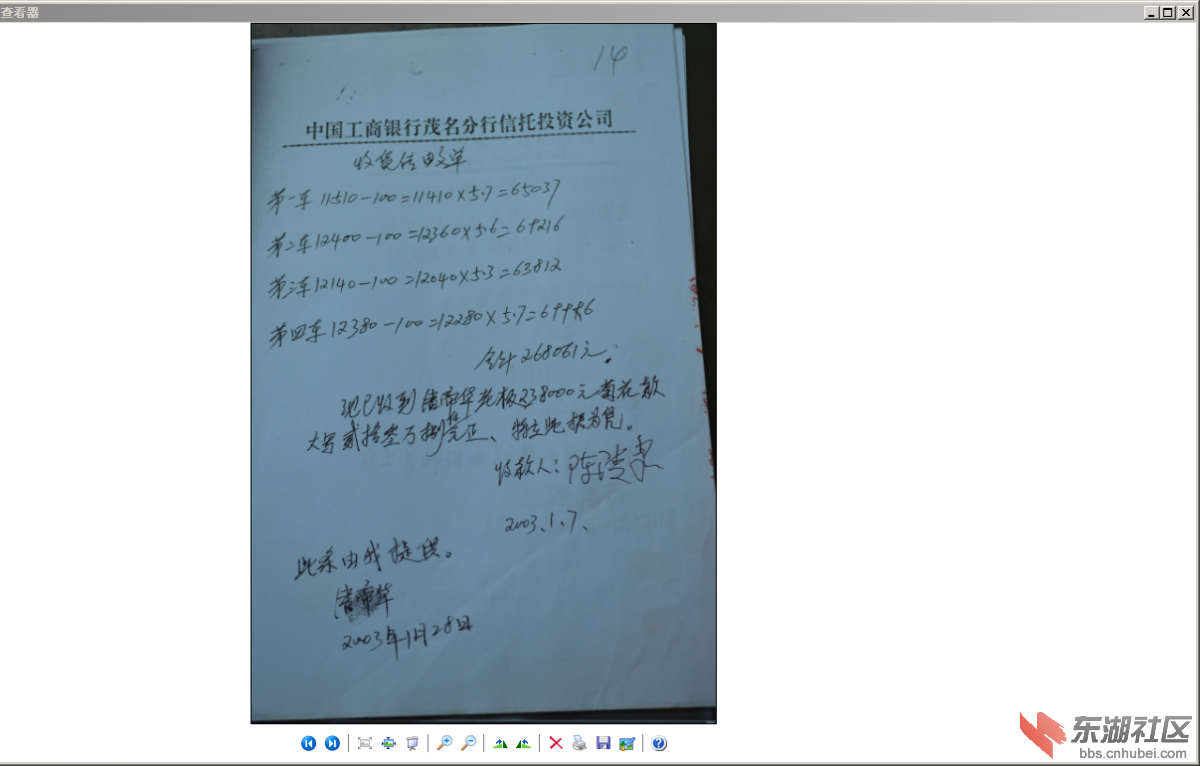 查看器
14
中国工商银行茂名分行信托投资公司
收货 单
第一车 11510-100=11410×5.7=65037
第二车 12400-100=12360×5.6=69216
第三车 12140-100=12040×5.3=63812
第四车 12380-100=12280×5.7=69996
合计 268061元。
现已收到 华老板238000元菊花款
大写贰拾叁万捌仟元正、特立此据为凭。
收款人: 陈
2003、1、7、
此系由我提供。
华
2003年1月28日
东湖社区
bbs.cnhubei.com